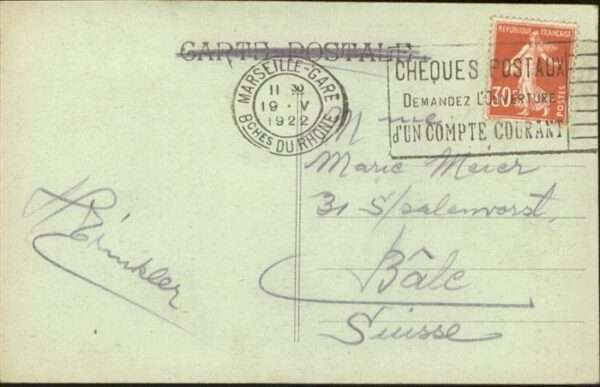 CARTE POSTALE
REPUBLIQUE FRANÇAISE
30c
POSTES
MARSEILLE-GARE
11
19 · V
1922
Bches DU RHONE
CHEQUES POSTAUX
DEMANDEZ L'OUVERTURE
d'UN COMPTE COURANT
Mme
Marie Meier
31 Spalenvorst.
Bâle
Suisse